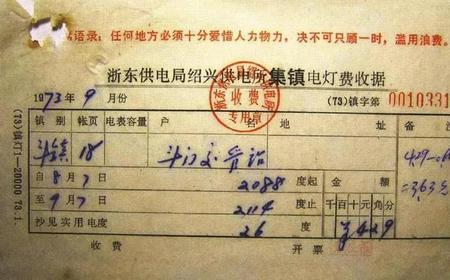 语录：任何地方必须十分爱惜人力物力，决不可只顾一时，滥用浪费。
浙东供电局绍兴供电所集镇电灯费收据
1973年9月份
收费
专用章
(73)镇字第0010331
镇别 帐页 电表容量 户名 地址 备
斗镇 18 斗门
自8月7日 2088 度起 金额
至9月7日 2114 度止 千百十元角分
抄见实用电度 26 度 429
收费 开票
(73)镇灯1—20000 73.1.